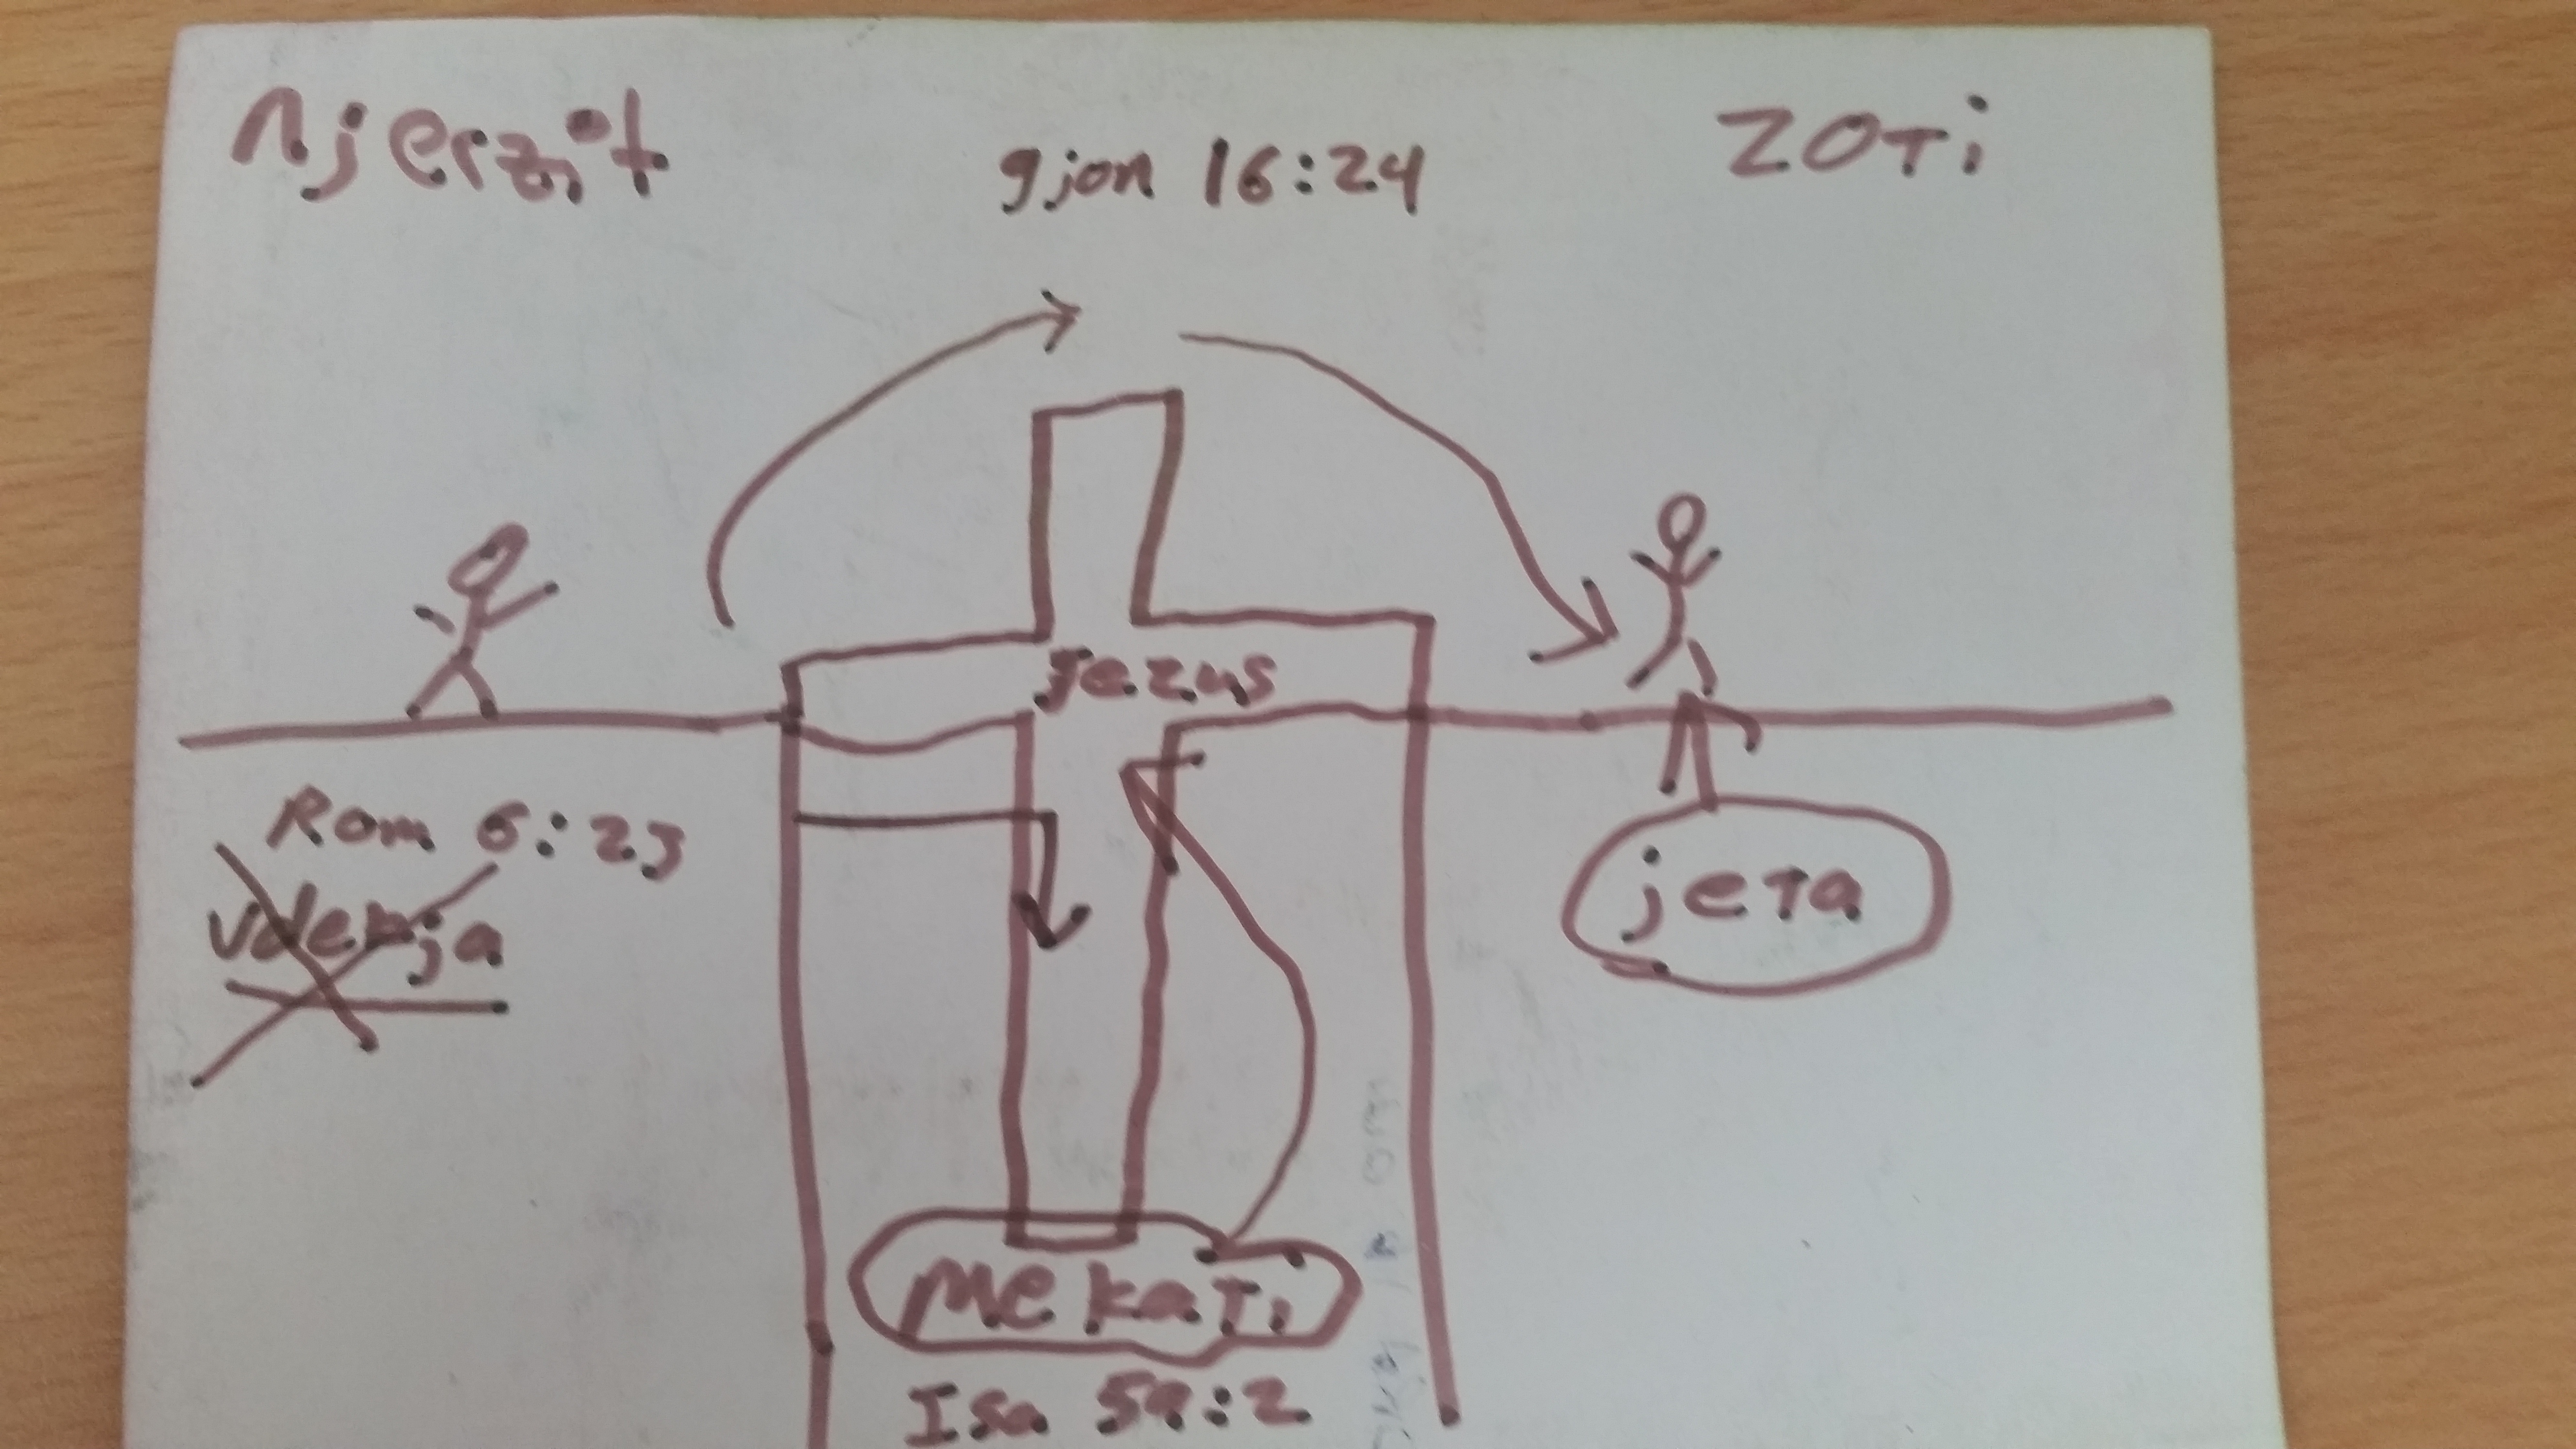 Njerzit
gjon 16:24
ZOTi
Jezus
Rom 6:23
Vdekja
jeTa
MekaTi
Isa 59:2